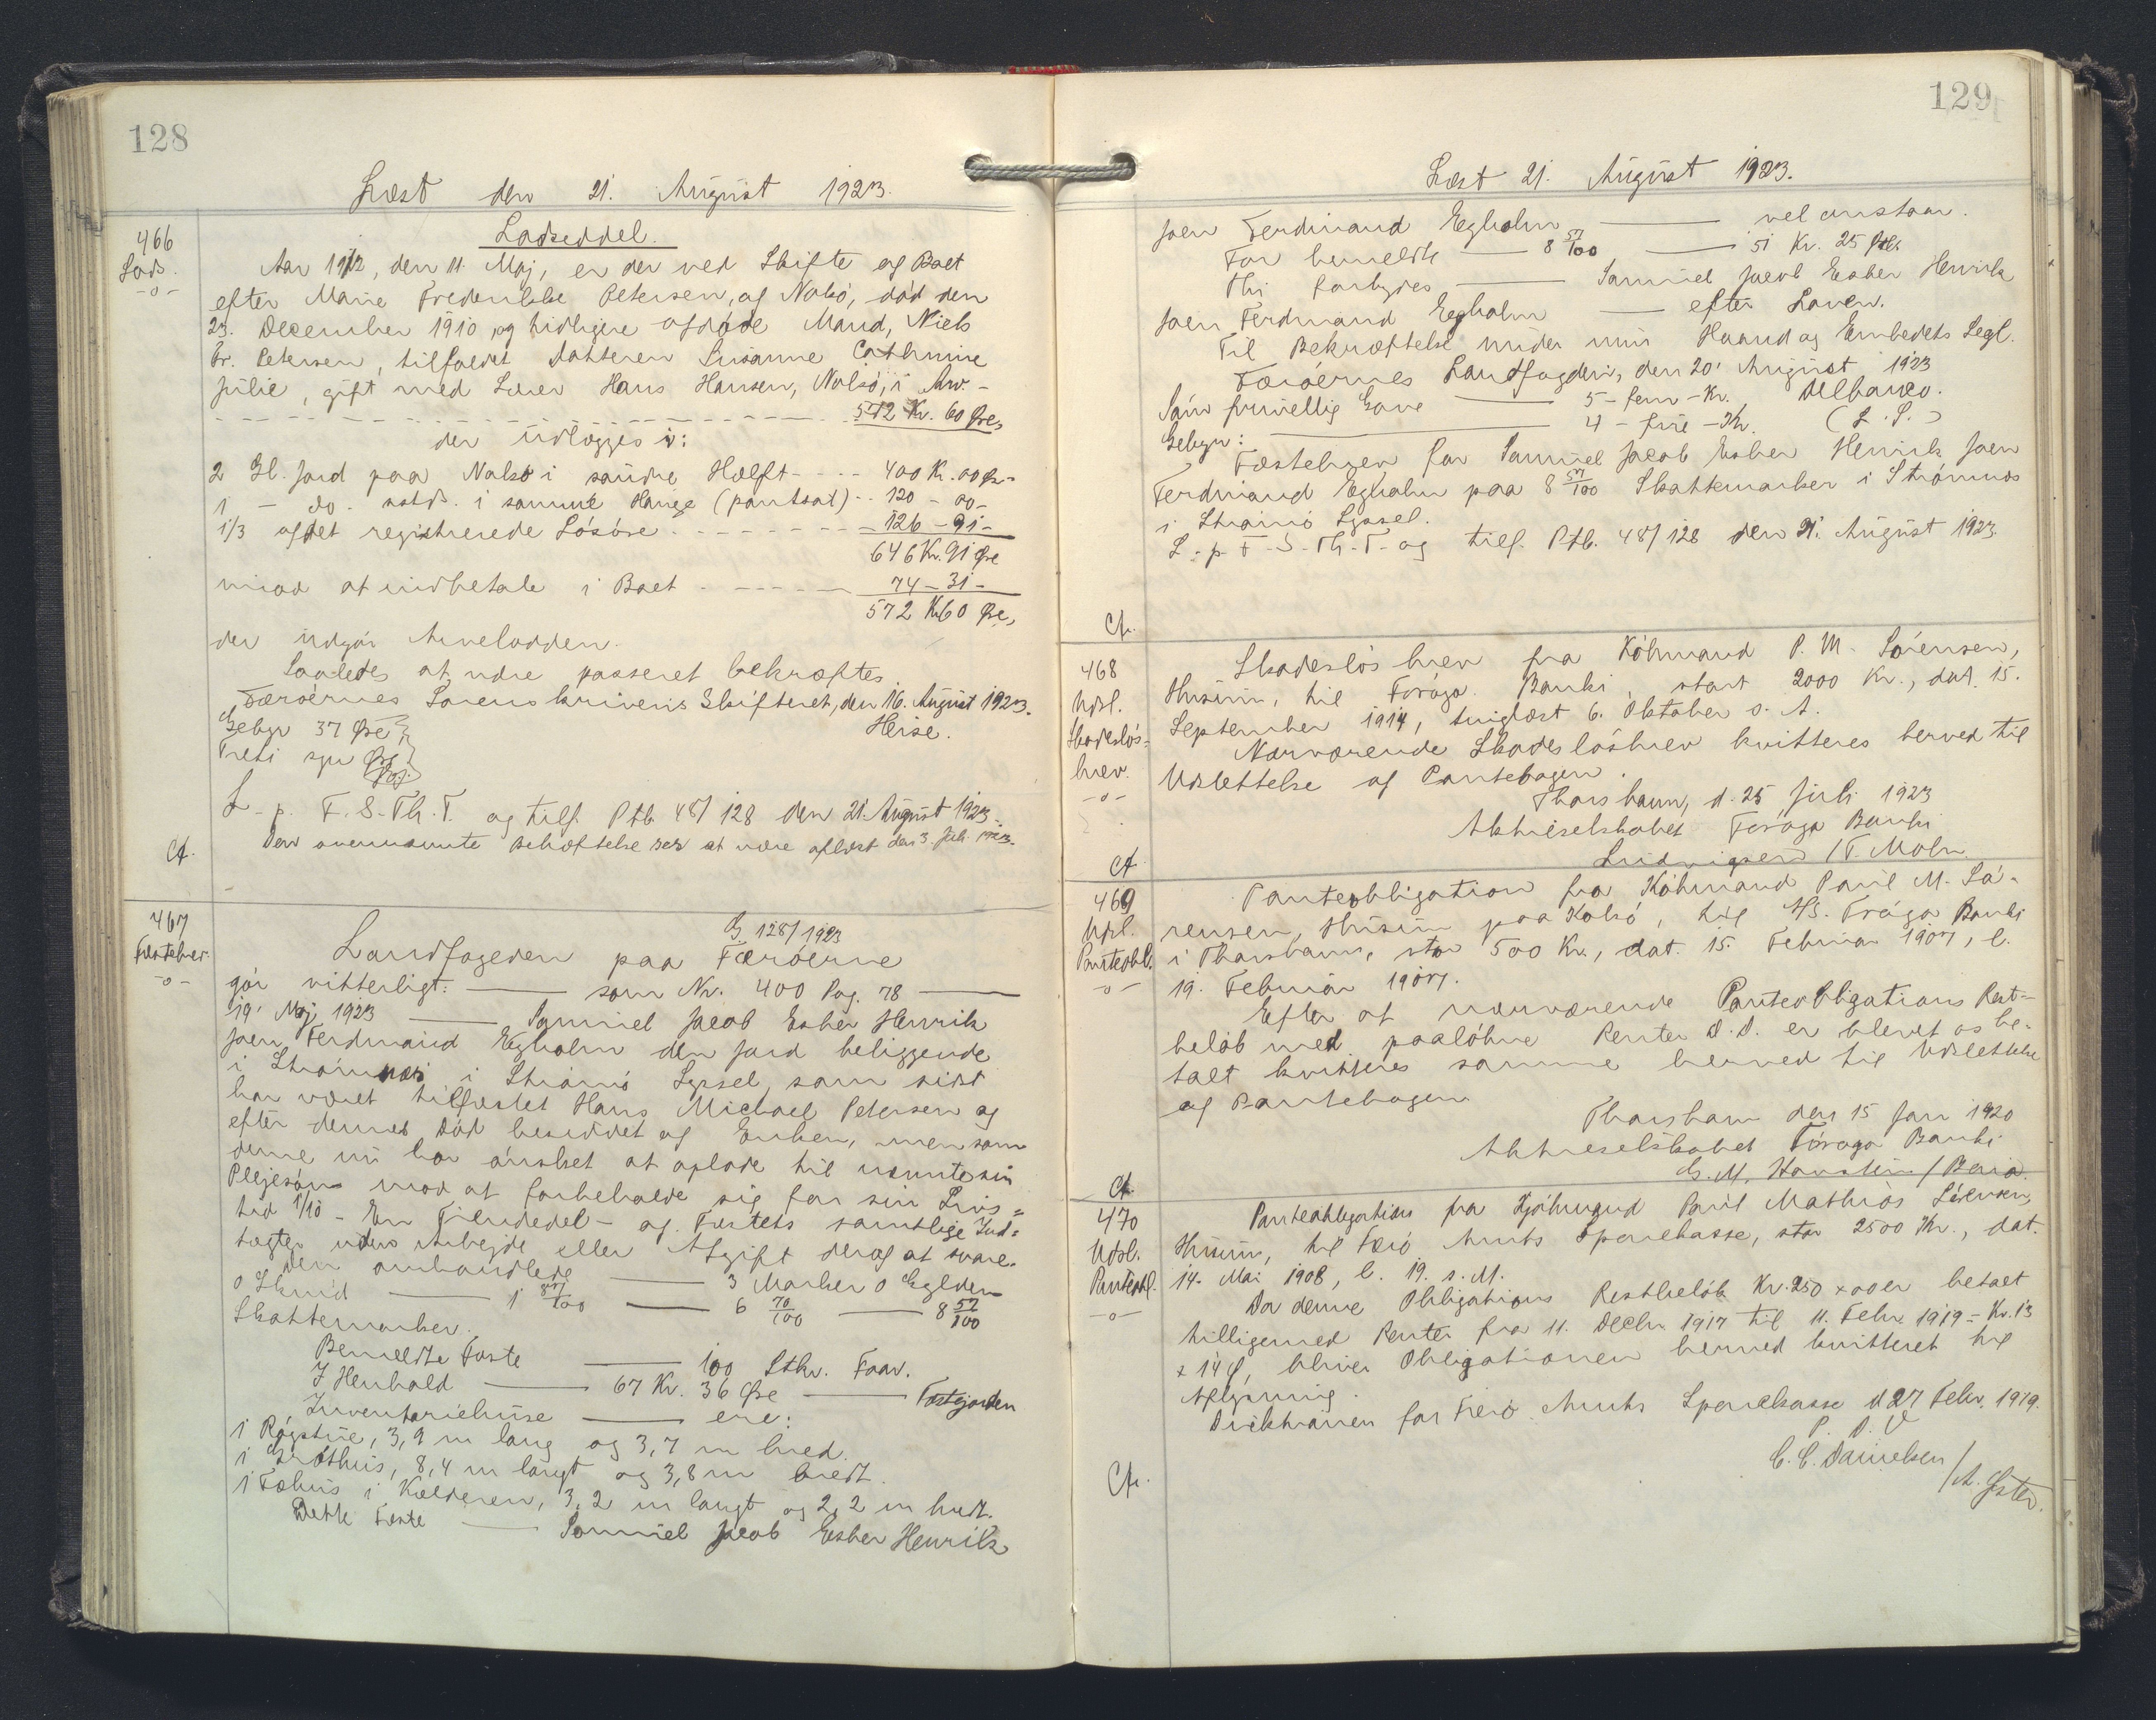 128
Læst den 21. August 1923.
466
Lods.
-o-
Lodseddel.
Aar 1912, den 11. Maj, er der ved Skifte og Boet
efter Marie Frederikke Petersen, af Nolsö, död den
23. December 1910 og tidligere afdöde Mand, Niels
Chr. Petersen, tilfaldet Datteren Susanne Cathrine
Julie, gift med Lærer Hans Hansen, Nolsö, i Arv -
572 Kr. 60 Øre,
der udlægges i:
2 Gl. Jord paa Nolsö i søndre Hælft - - - - 400 Kr. 00 Ør -
1 - do. østds. i samme Hauge (pantsat) - - 120 - 00 -
1/3 af det registrerede Lösöre - - - - - 126 - 91 -
646 Kr. 91 Øre
mod at indbetale i Boet - - - - - 74 - 31 -
572 Kr 60 Øre,
der udgör Arvelodden.
Saaledes at være passeret bekræftes.
Færöernes Sorenskriveris Skifteret, den 16. August 1923.
Heise.
Gebyr 37 Øre
Treti syv Øre
L. p. F. S. Th. T. og tilf. Ptb. 48/128 den 21. August 1923.
Den ovennævnte Behæftelse ses at være aflæst den 3. Feb. 1923.
Cf.
467
Fæstebrev
-o-
G. 128/1923
Landfogeden paa Færöerne
gör vitterligt: —— som Nr. 400 Pag. 78 ——
19. Maj 1923 —— Samuel Jacob Esber Henrik
Joen Ferdinand Egholm den Jord beliggende
i Strömnæs i Strömö Syssel, som sidst
har været tilfæstet Hans Michael Petersen og
efter dennes Död besiddet af Enken, men som
denne nu har önsket at oplade til nævnte sin
Plejesön mod at forbeholde sig for sin Livs=
tid 1/10 - En Tiendedel - af Fæstets samtlige Ind=
tægter uden Arbejde eller Afgift deraf at svare.
Den omhandlede —— 3 Marker 0 Gylden
0 Skind —— 1 87/100 —— 6 70/100 —— 8 57/100
Skattemarker.
Bemeldte Fæste —— 100 Stkr. Faar.
I Henhold —— 67 Kr. 36 Øre —— Fæstejorden
Inventariehuse —— ere:
1 Rögstue, 3,9 m lang og 3,7 m bred.
1 Gröthus, 8,4 m langt og 3,8 m bredt.
1 Fæhus i Kælderen, 3,2 m langt og 2,2 m bredt.
Dette Fæste —— Samuel Jacob Esber Henrik
129
Læst 21. August 1923.
Joen Ferdinand Egholm —— vel anstaar.
For bemeldte —— 8 57/100 —— 51 Kr. 25 Øre.
Thi forbydes —— Samuel Jacob Esber Henrik
Joen Ferdinand Egholm —— efter Loven.
Til Bekræftelse under min Haand og Embedets Segl.
Færöernes Landfogderi, den 20. August 1923
Som frivillig Gave —— 5 - fem - Kr. Delbanco.
Gebyr: —— 4 - fire - Kr. (L. S.)
Fæstebrev for Samuel Jacob Esber Henrik Joen
Ferdinand Egholm paa 8 57/100 Skattemarker i Strömnæs
i Strömö Syssel.
L. p. F. S. Th. T. og tilf. Ptb. 48/128 den 21. August 1923.
Cf.
468
Udsl.
Skadeslös=
brev.
-o-
Skadeslösbrev fra Köbmand P. M. Sörensen,
Husum, til Föroya Banki, stort 2000 Kr., dat. 15.
September 1914, tinglæst 6. Oktober s. A.
Nærværende Skadeslösbrev kvitteres herved til
Udslettelse af Pantebogen.
Thorshavn, d. 25 Juli 1923
Aktieselskabet Föroya Banki
Ludvigsen / T. Mohr.
Cf.
469
Udsl.
Panteobl.
-o-
Panteobligation fra Köbmand Poul M. Sö-
rensen, Husum paa Kolsö, til A/S. Föroya Banki
i Thorshavn, stor 500 Kr., dat. 15. Februar 1907, l.
19. Februar 1907.
Efter at nærværende Panteobligations Rest-
belöb med paalöbne Renter d. D. er blevet os be-
talt kvitteres samme herved til Udslettelse
af Pantebogen
Thorshavn den 15 Jan 1920
Aktieselskabet Föroya Banki
Cf.
470
Udsl.
Panteobl.
-o-
Panteobligation fra Kjöbmand Poul Mathias Sörensen,
Husum, til Færö Amts Sparekasse, stor 2500 Kr., dat.
14. Mai 1908, l. 19. s. M.
Da denne Obligations Restbelöb Kr. 250 x 00 er betalt
tilligemed Renter fra 11. Decbr. 1917 til 11. Febr. 1919 = Kr. 13
x 14 Ø, bliver Obligationen herved kvitteret til
Aflysning.
Direktionen for Færö Amts Sparekasse d 27 Febr. 1919.
P. D. V
C. C. Danielsen
Cf.